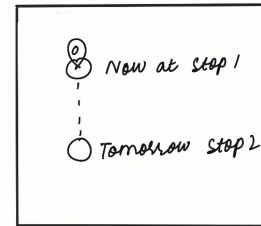 Now at stop 1
Tomorrow stop 2